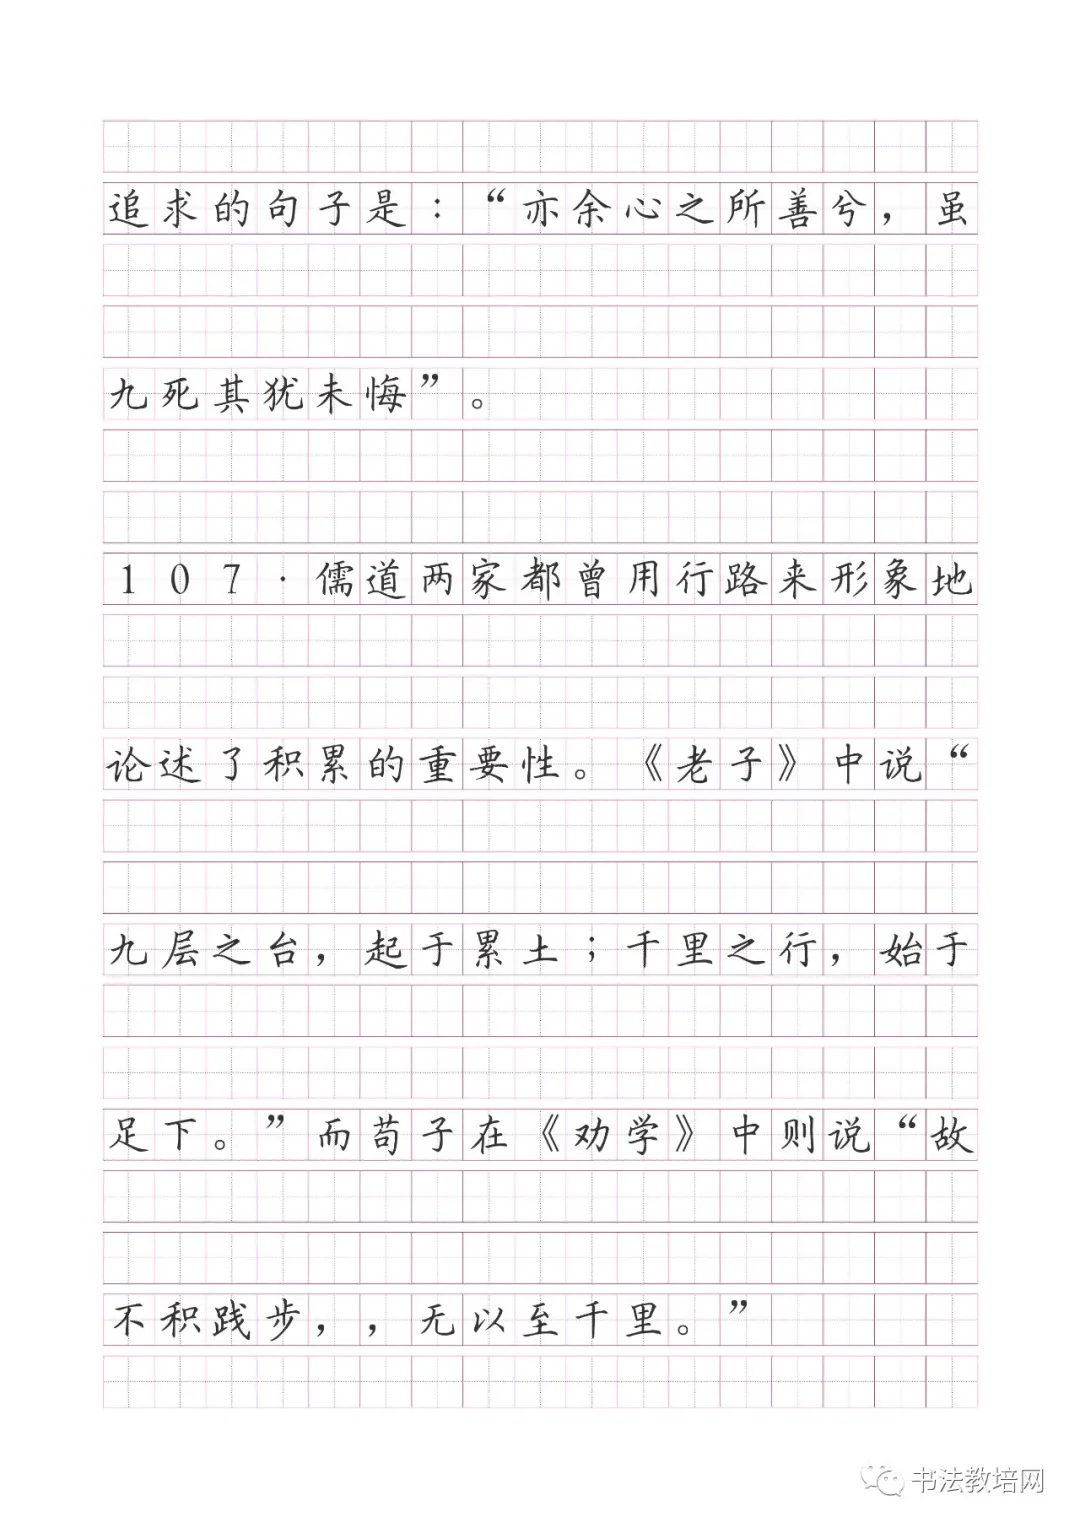 追求的句子是：“亦余心之所善兮，虽
九死其犹未悔”。
107·儒道两家都曾用行路来形象地
论述了积累的重要性。《老子》中说“
九层之台，起于累土；千里之行，始于
足下。”而苟子在《劝学》中则说“故
不积践步，，无以至千里。”
书法教培网